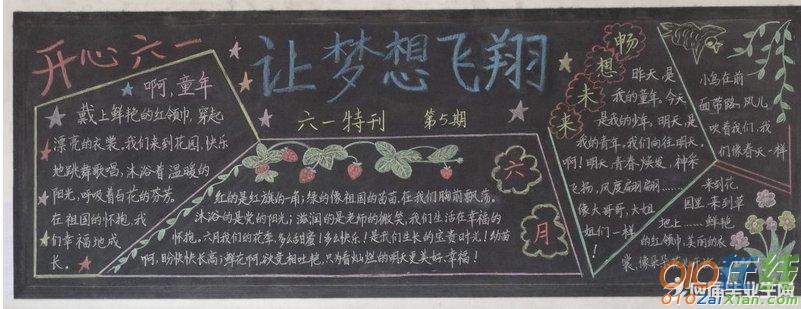 开心六一
让梦想飞翔
六一特刊 第5期
啊,童年
戴上鲜艳的红领巾,穿起
漂亮的衣裳。我们来到花园,快乐
地跳舞歌唱,沐浴着温暖的
阳光,呼吸着百花的芬芳
在祖国的怀抱,我
们幸福地成
长。
六月
红的是红旗的一角;绿的像祖国的苗苗,在我们胸前飘荡。
沐浴的是党的阳光;滋润的是老师的微笑,我们生活在幸福的
怀抱。六月我们的花季,多么甜蜜!多么快乐!是我们生长的宝贵时光!幼苗
啊,盼快快长高;鲜花啊,欲竞相吐艳,只为着灿烂的明天更美好、幸福!
畅想未来
昨天是
我的童年,今天
是我的少年,明天是
我的青年,我们向往明天。
啊!明天,青春焕发,神采
飞扬,风度翩翩……
像大哥哥,大姐
姐们一样
小鸟在前
面带路,风儿
吹着我们,我
们像春天一样
来到花
园里,来到草
地上……鲜艳
的红领巾,美丽的衣
裳,像
910在线
910ZaiXian.com
应届毕业生网